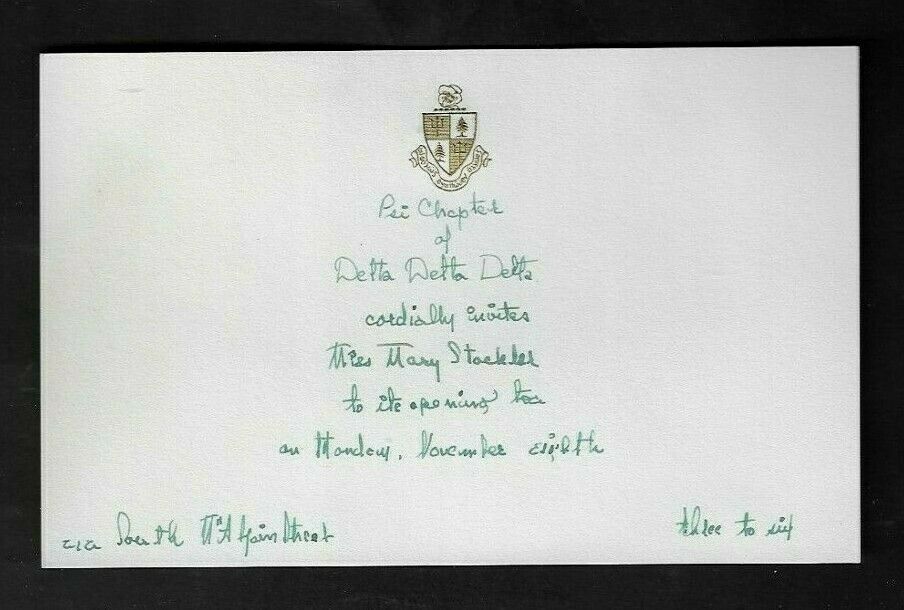 Psi Chapter
of
Delta Delta Delta
cordially invites
Miss Mary Stockler
to its opening tea
on Monday, November eighth
South Main Street
three to six